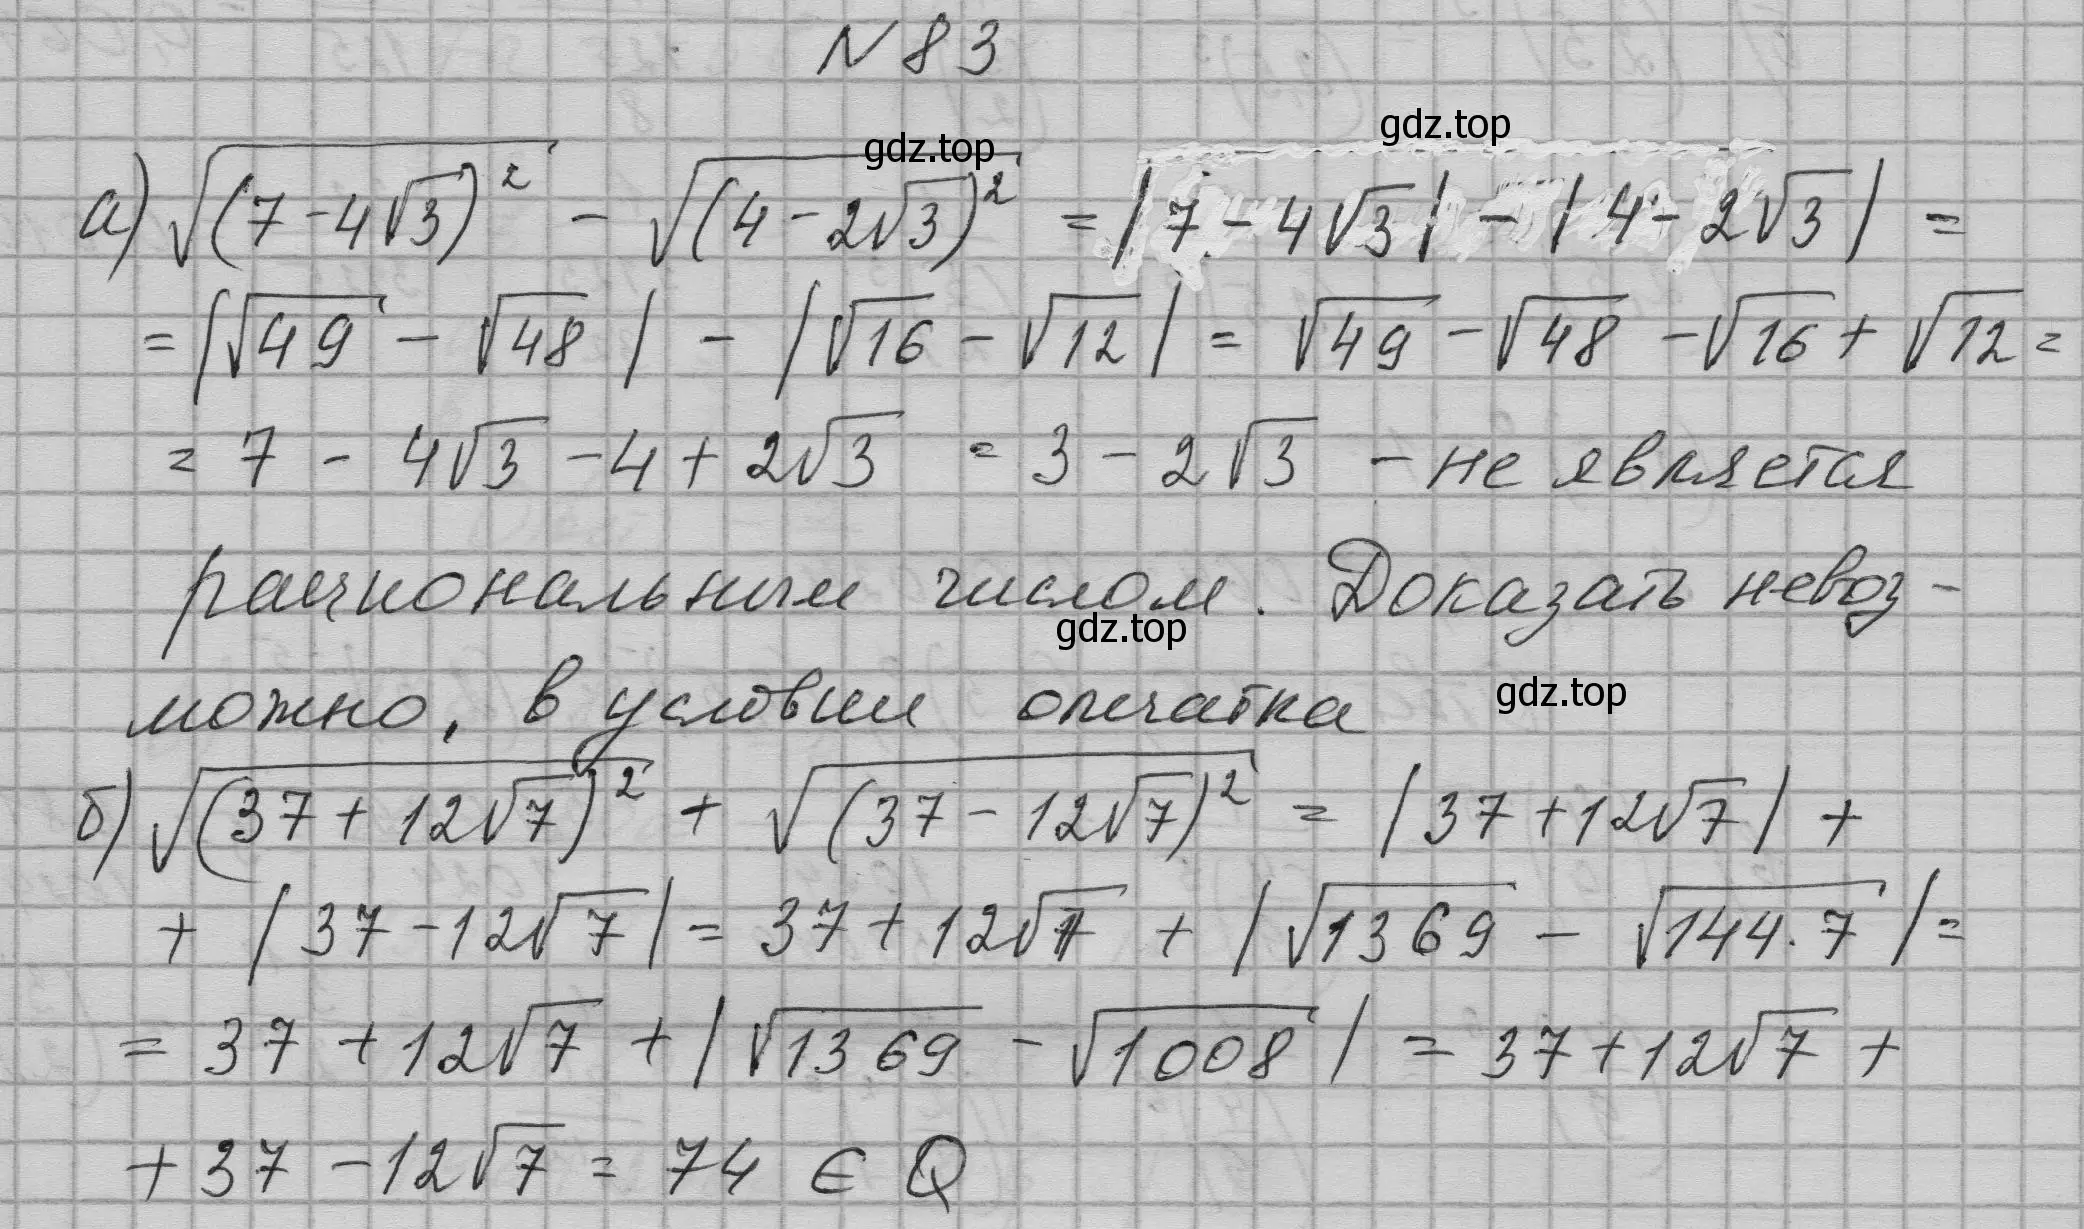 N 83
gdz.top
gdz.top
а) √(7-4√3)² - √(4-2√3)² = |7-4√3| - |4-2√3| =
= |√49 - √48| - |√16 - √12| = √49 - √48 - √16 + √12 =
= 7 - 4√3 - 4 + 2√3 = 3 - 2√3 - не является
рациональным числом. Доказать невоз-
gdz.top
можно, в условии опечатка
gdz.top
б) √(37+12√7)² + √(37-12√7)² = |37+12√7| +
+ |37-12√7| = 37+12√7 + |√1369 - √144·7| =
= 37+12√7 + |√1369 - √1008| = 37+12√7 +
+ 37 - 12√7 = 74 ∈ Q